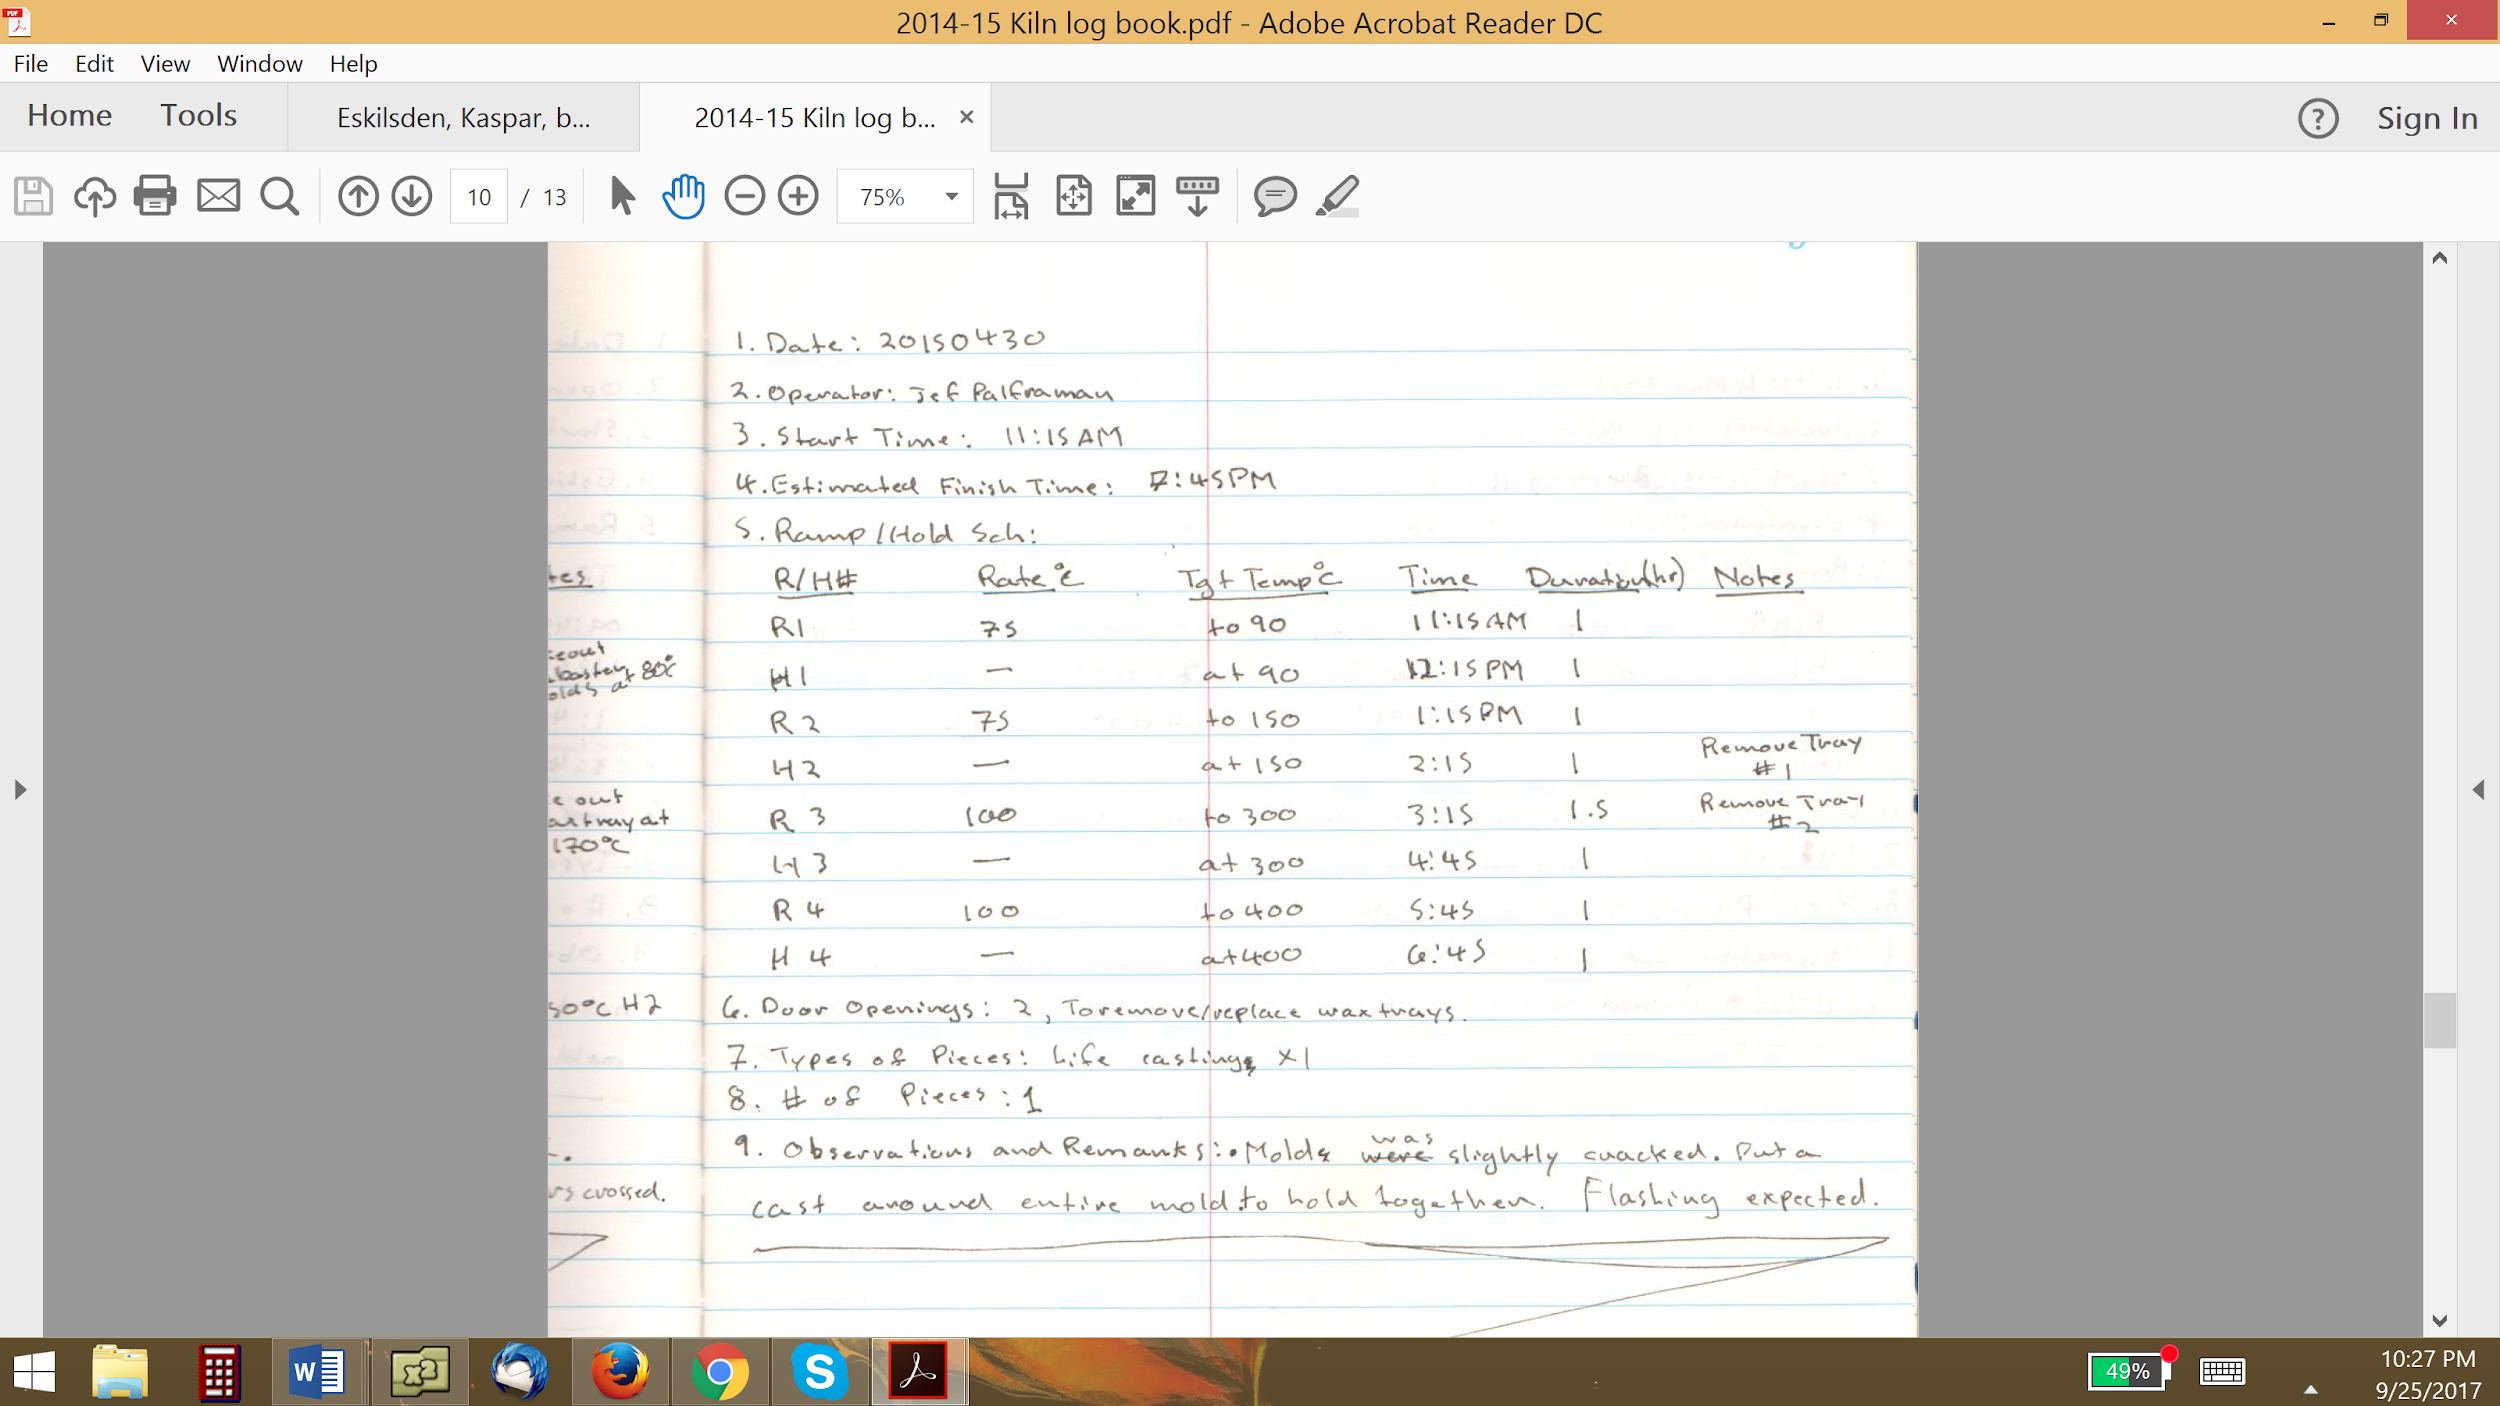 2014-15 Kiln log book.pdf - Adobe Acrobat Reader DC
File Edit View Window Help
Home Tools Eskilsden, Kaspar, b... 2014-15 Kiln log b... Sign In
10 / 13 75%
1. Date: 20150430
2. Operator: Jef Palframan
3. Start Time: 11:15 AM
4. Estimated Finish Time: 7:45PM
5. Ramp/Hold Sch:
tes R/H# Rate °C Tgt Temp °C Time Duration(hr) Notes
R1 75 to 90 11:15 AM 1
H1 — at 90 12:15 PM 1
R2 75 to 150 1:15 PM 1
H2 — at 150 2:15 1 Remove Tray #1
R3 100 to 300 3:15 1.5 Remove Tray #2
H3 — at 300 4:45 1
R4 100 to 400 5:45 1
H4 — at 400 6:45 1
olds at 80°C
e out
tray at
170°C
50°C H2
6. Door Openings: 2, To remove/replace wax trays.
7. Types of Pieces: Life casting x1
8. # of Pieces: 1
9. Observations and Remarks: • Mold was slightly cracked. Put a
rs crossed.
cast around entire mold to hold together. Flashing expected.
49%
10:27 PM
9/25/2017